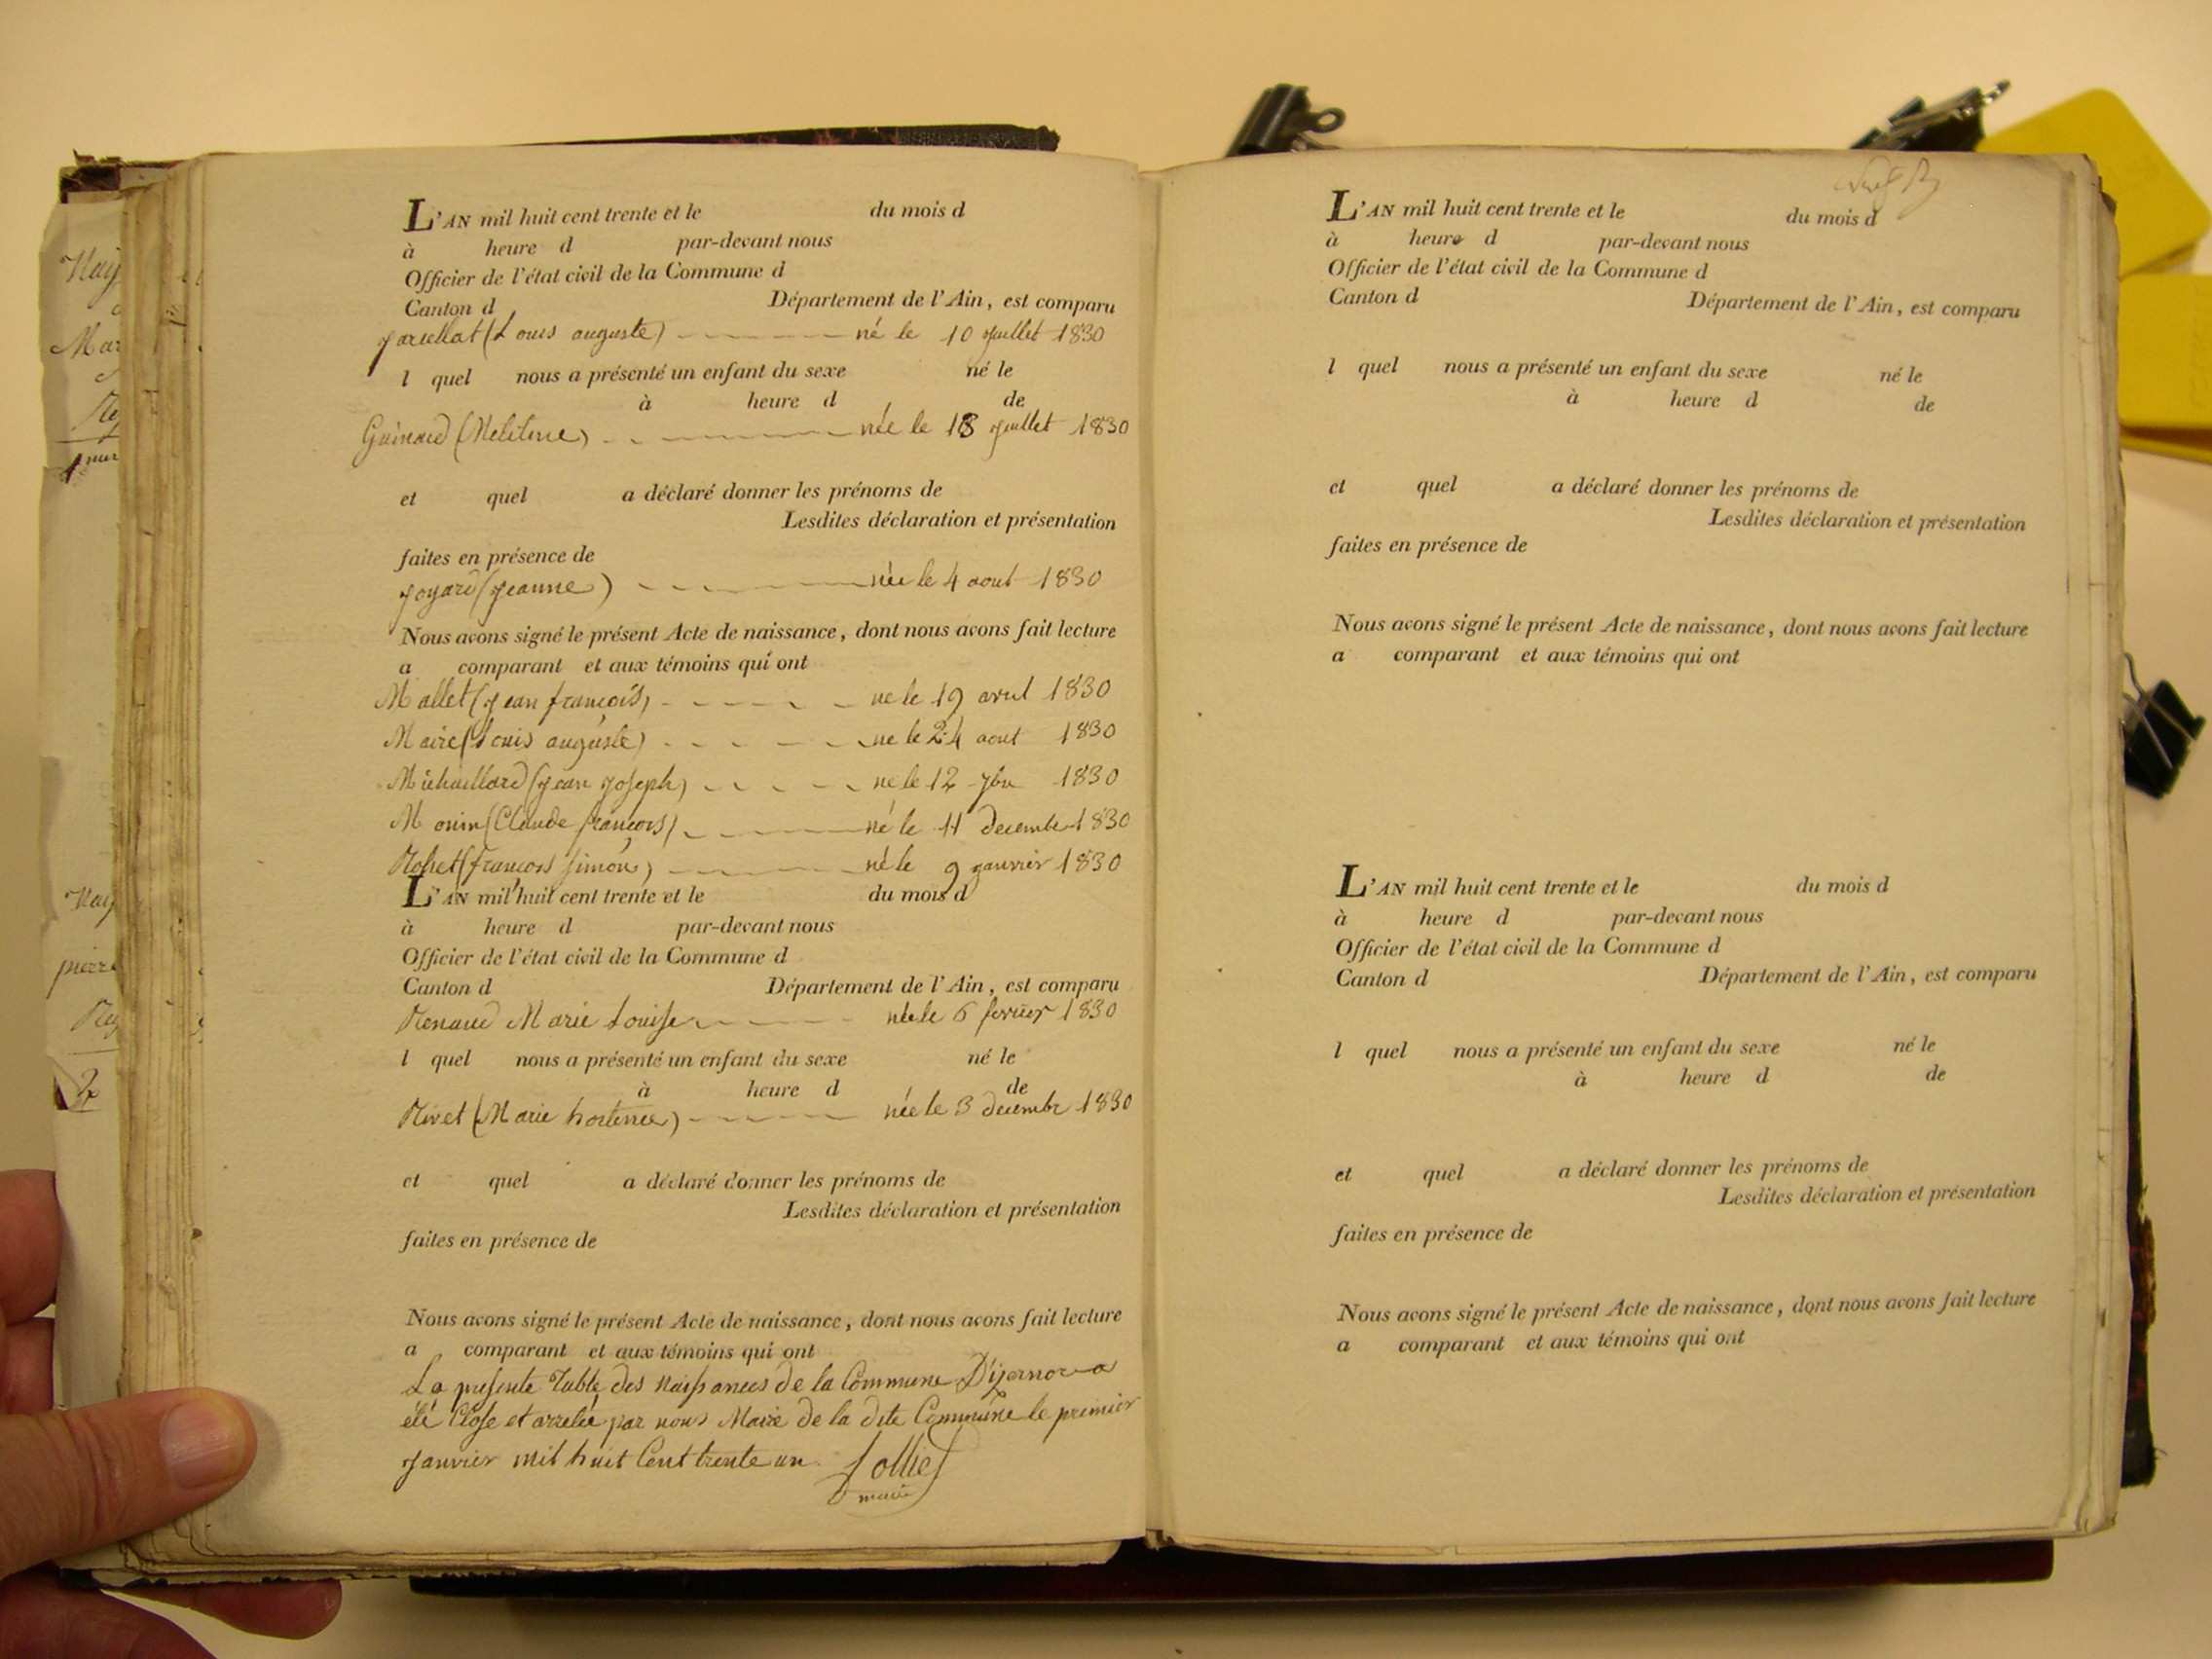 L'AN mil huit cent trente et le du mois d
à heure d par-devant nous
Officier de l'état civil de la Commune d
Canton d Département de l'Ain, est comparu
(Louis auguste) né le 10 juillet 1830
l quel nous a présenté un enfant du sexe né le
à heure d de
née le 18 juillet 1830
et quel a déclaré donner les prénoms de
Lesdites déclaration et présentation
faites en présence de
joyard (jeanne) née le 4 aout 1830
Nous avons signé le présent Acte de naissance, dont nous avons fait lecture
a comparant et aux témoins qui ont
Mallet (jean françois) né le 19 avril 1830
Maire (Louis auguste) né le 24 aout 1830
Michaillard (jean joseph) né le 12 7bre 1830
Monin (Claude françois) né le 11 decembre 1830
(françois simon) né le 9 janvier 1830
L'AN mil huit cent trente et le du mois d
à heure d par-devant nous
Officier de l'état civil de la Commune d
Canton d Département de l'Ain, est comparu
Renaud Marie Louise née le 6 fevrier 1830
l quel nous a présenté un enfant du sexe né le
à heure d de
Rivet (Marie hortence) née le 3 decembre 1830
et quel a déclaré donner les prénoms de
Lesdites déclaration et présentation
faites en présence de
Nous avons signé le présent Acte de naissance, dont nous avons fait lecture
a comparant et aux témoins qui ont
La presente Table des Naissances de la Commune D'izernore a
été Close et arretée par nous Maire de la dite Commune le premier
janvier mil huit Cent trente un
maire
L'AN mil huit cent trente et le du mois d
à heure d par-devant nous
Officier de l'état civil de la Commune d
Canton d Département de l'Ain, est comparu
l quel nous a présenté un enfant du sexe né le
à heure d de
et quel a déclaré donner les prénoms de
Lesdites déclaration et présentation
faites en présence de
Nous avons signé le présent Acte de naissance, dont nous avons fait lecture
a comparant et aux témoins qui ont
L'AN mil huit cent trente et le du mois d
à heure d par-devant nous
Officier de l'état civil de la Commune d
Canton d Département de l'Ain, est comparu
l quel nous a présenté un enfant du sexe né le
à heure d de
et quel a déclaré donner les prénoms de
Lesdites déclaration et présentation
faites en présence de
Nous avons signé le présent Acte de naissance, dont nous avons fait lecture
a comparant et aux témoins qui ont